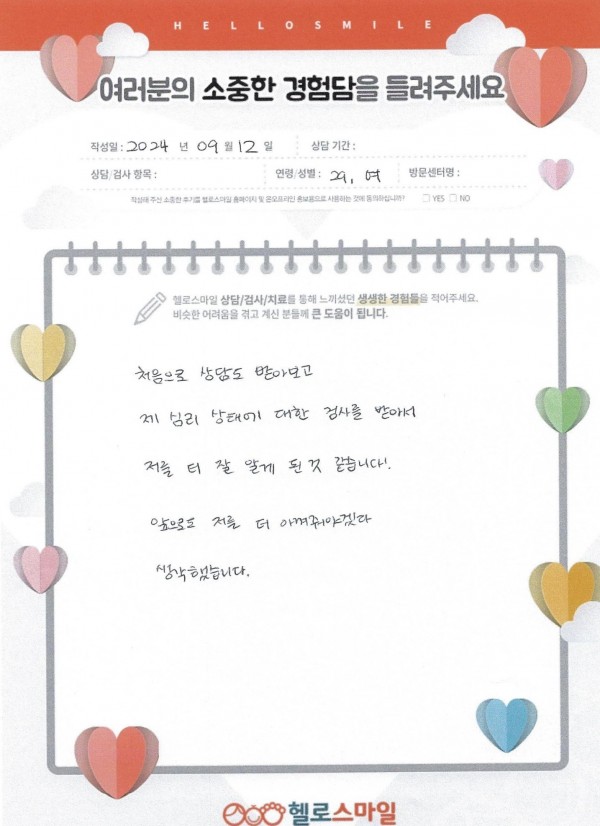 HELLOSMILE
여러분의 소중한 경험담을 들려주세요
작성일 : 2024 년 09 월 12 일 상담 기간 :
상담/검사 항목 : 연령/성별 : 29, 여 방문센터명 :
작성해 주신 소중한 후기를 헬로스마일 홈페이지 및 온오프라인 홍보용으로 사용하는 것에 동의하십니까? YES NO
헬로스마일 상담/검사/치료를 통해 느끼셨던 생생한 경험들을 적어주세요.
비슷한 어려움을 겪고 계신 분들께 큰 도움이 됩니다.
처음으로 상담도 받아보고
제 심리 상태에 대한 검사를 받아서
저를 더 잘 알게 된 것 같습니다!
앞으로도 저를 더 아껴줘야겠다
생각했습니다.
헬로스마일